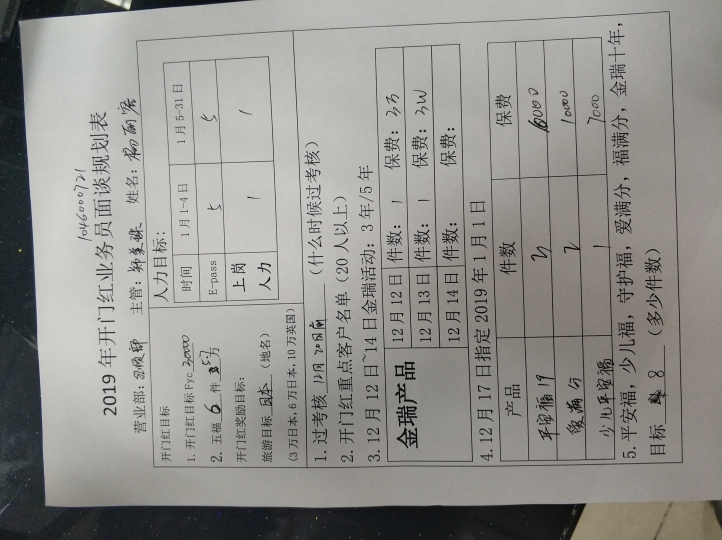 1046000721
2019年开门红业务员面谈规划表
营业部: 主管: 姓名:
开门红目标
1. 开门红目标 Fyc 30000
2. 五福 6 件 万
开门红奖励目标:
旅游目标 日本 (地名)
(3万日本, 6万日本, 10万英国)
人力目标:
时间 1月1-4日 1月5-31日
E-pass 5 5
上岗人力 1 1
1. 过考核 12月20日前 (什么时候过考核)
2. 开门红重点客户名单(20人以上)
3. 12月12日~14日金瑞活动: 3年/5年
金瑞产品
12月12日 件数: 1 保费: 3万
12月13日 件数: 1 保费: 3W
12月14日 件数: 保费:
4. 12月17日指定2019年1月1日
产品 件数 保费
平安福19 3
爱满分 2 10000
少儿平安福 1 7000
5. 平安福, 少儿福, 守护福, 爱满分, 福满分, 金瑞十年,
目标 8 (多少件数)